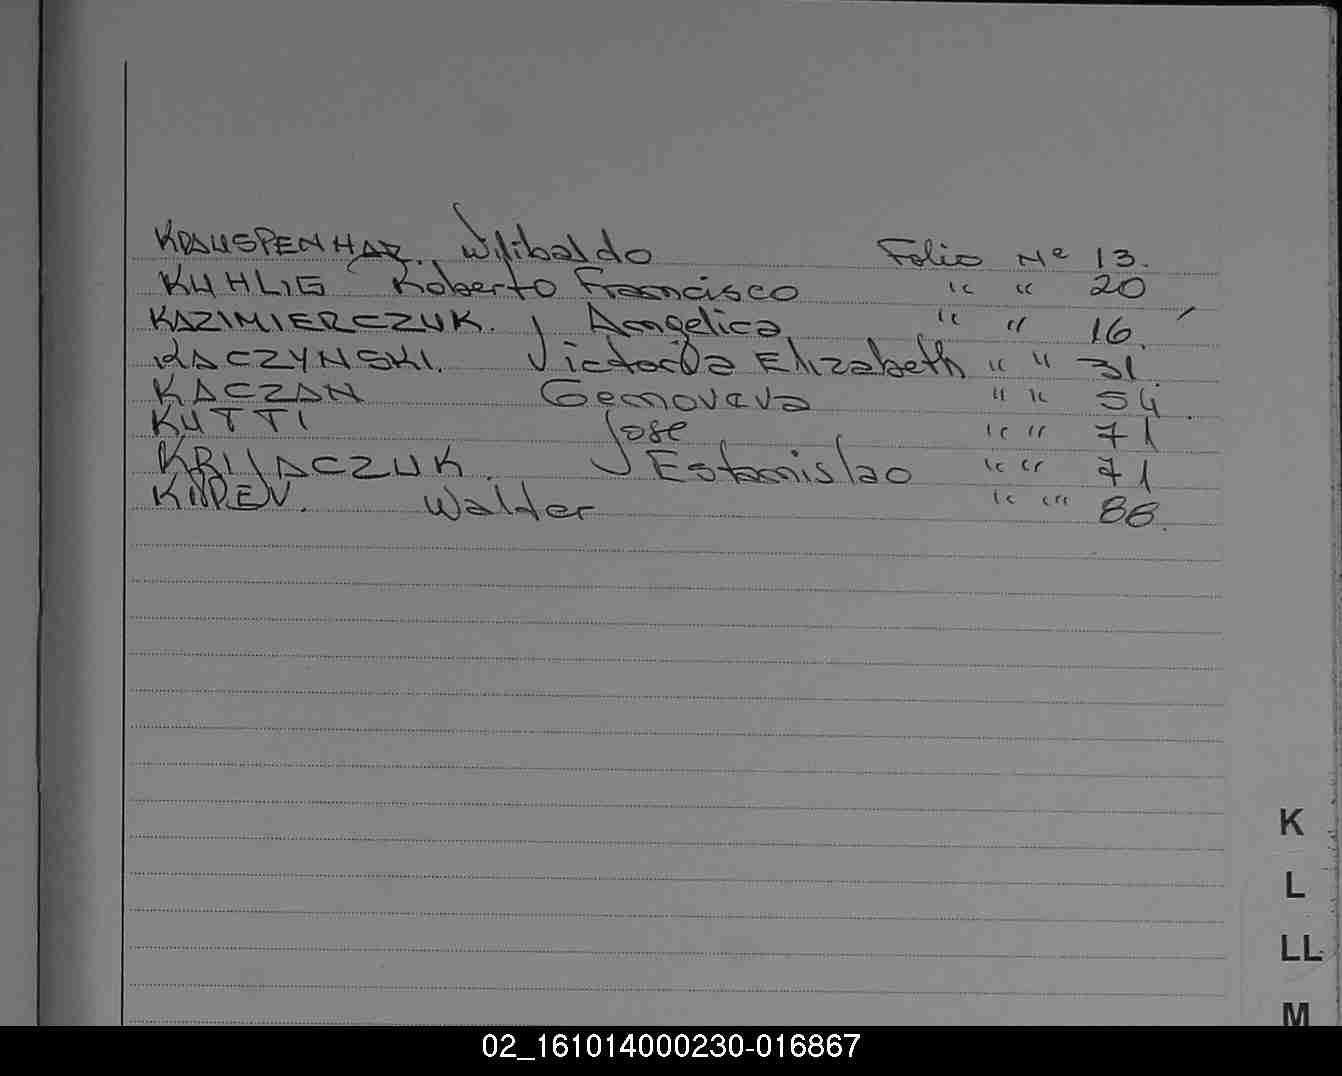 KRAUSPENHAR. Wilibaldo Folio Nº 13.
KUHLIG Roberto Francisco " " 20
KAZIMIERCZUK. Angelica " " 16.
KACZYNSKI. Victoria Elizabeth " " 31.
KACZAN Genoveva " " 54.
KUTTI Jose " " 71
KRUACZUK. Estanislao " " 71
Walter " " 88.
K
L
LL
M
02_161014000230-016867